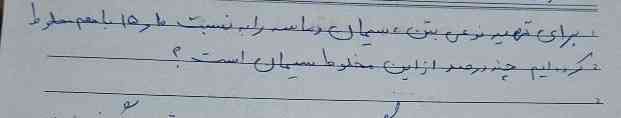 برای تهیه نوعی بتن ، سیمان و ماسه را به نسبت ۵ و ۱۵ با هم مخلوط
کرده‌ایم چند درصد از این مخلوط سیمان است ؟